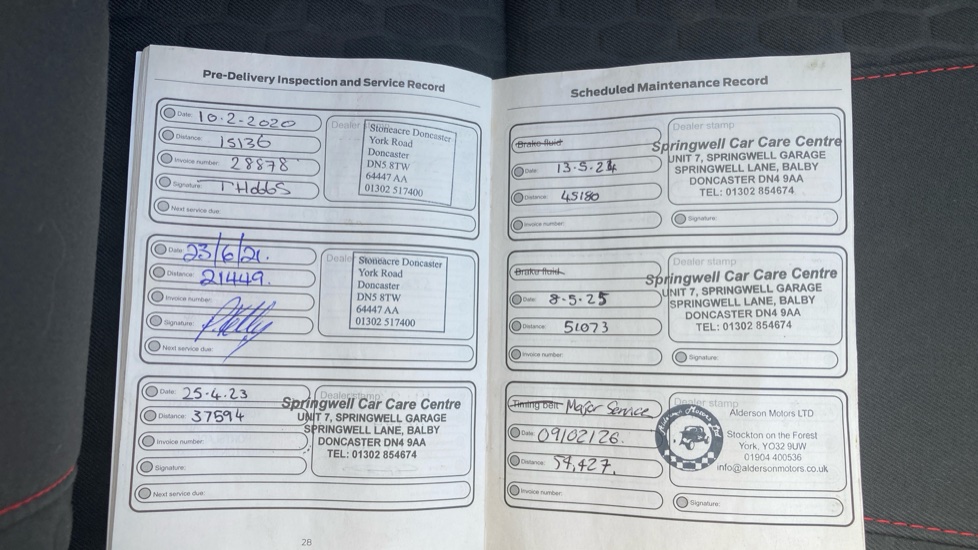 Pre-Delivery Inspection and Service Record
Date: 10.2-2020
Distance: 15136
Invoice number: 28878
Signature: T Hobbs
Next service due:
Dealer
Stoneacre Doncaster
York Road
Doncaster
DN5 8TW
64447 AA
01302 517400
Date: 23/6/21.
Distance: 21449.
Invoice number:
Signature:
Next service due:
Deale
Stoneacre Doncaster
York Road
Doncaster
DN5 8TW
64447 AA
01302 517400
Date: 25.4.23
Distance: 37594
Invoice number:
Signature:
Next service due:
Dealer stamp
Springwell Car Care Centre
UNIT 7, SPRINGWELL GARAGE
SPRINGWELL LANE, BALBY
DONCASTER DN4 9AA
TEL: 01302 854674
28
Scheduled Maintenance Record
Brake fluid
Date: 13.5.24
Distance: 45180
Invoice number:
Dealer stamp
Springwell Car Care Centre
UNIT 7, SPRINGWELL GARAGE
SPRINGWELL LANE, BALBY
DONCASTER DN4 9AA
TEL: 01302 854674
Signature:
Brake fluid
Date: 8.5.25
Distance: 51073
Invoice number:
Dealer stamp
Springwell Car Care Centre
UNIT 7, SPRINGWELL GARAGE
SPRINGWELL LANE, BALBY
DONCASTER DN4 9AA
TEL: 01302 854674
Signature:
Timing belt Major Service
Date: 09/02/26.
Distance: 54,427.
Invoice number:
Dealer stamp
Alderson Motors Ltd
Alderson Motors LTD
Stockton on the Forest
York, YO32 9UW
01904 400536
info@aldersonmotors.co.uk
Signature: